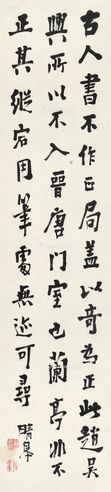 古人書不作正局蓋以奇為正此趙吳
興所以不入晉唐門室也蘭亭非不
正其縱宕用筆處無迹可尋